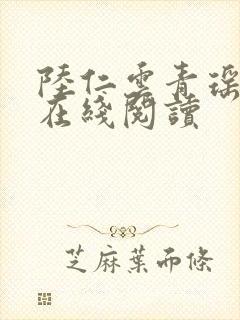 陸仁雲青瑶
在綫閱讀
芝麻葉而條